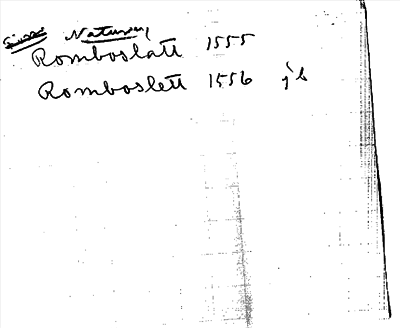 Naturen,
Romboslatt 1555
Romboslett 1556 jb